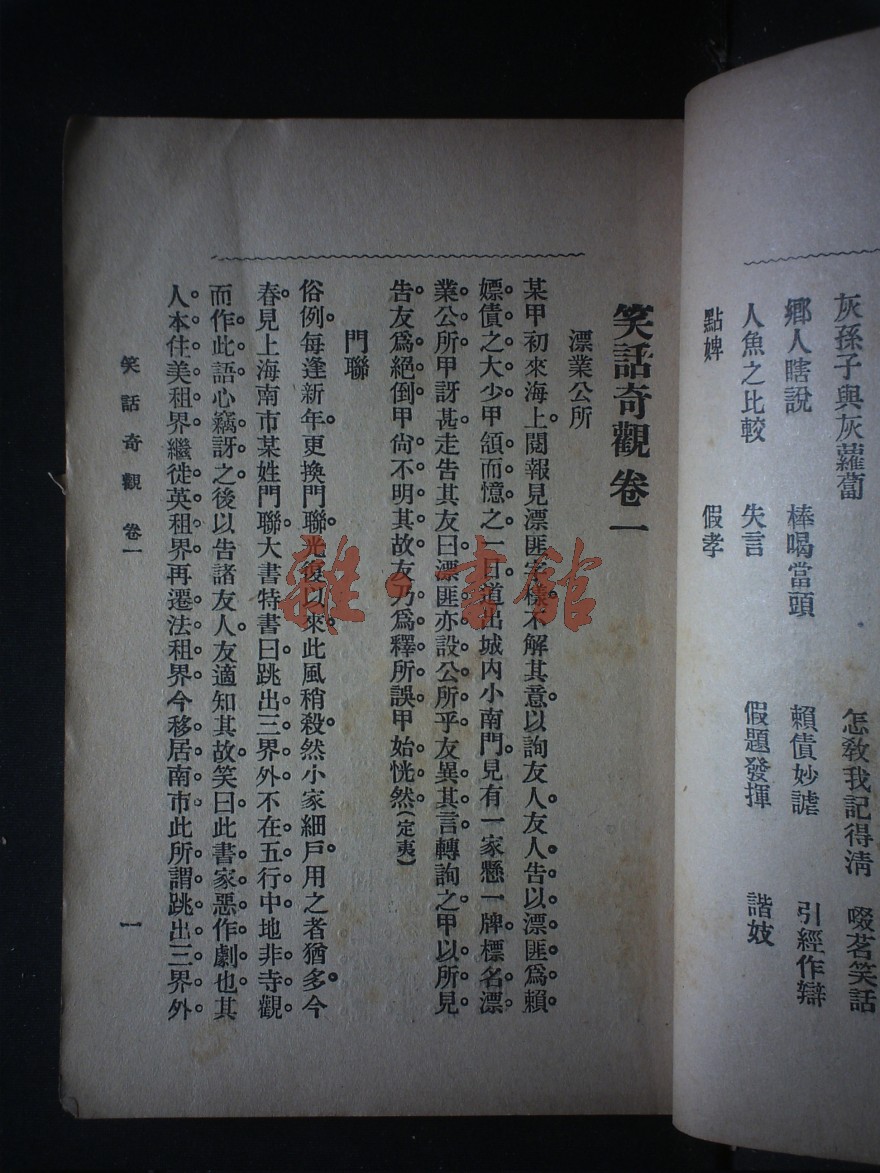 灰孫子與灰蘿蔔　怎教我記得清　啜茗笑話
鄉人瞎說　棒喝當頭　賴債妙謔　引經作辯
人魚之比較　失言　假題發揮　諧妓
點婢　假孝
笑話奇觀 卷一
漂業公所
某甲初來海上。閱報見漂匪字樣。不解其意。以詢友人。友人告以漂匪爲賴
嫖債之大少。甲頷而憶之。一日道出城內小南門。見有一家懸一牌。標名漂
業公所。甲訝甚。走告其友曰。漂匪亦設公所乎。友異其言。轉詢之。甲以所見
告。友爲絕倒。甲尙不明其故。友乃爲釋所誤。甲始恍然。(定夷)
門聯
俗例。每逢新年。更換門聯。光復以來。此風稍殺。然小家細戶。用之者猶多。今
春。見上海南市某姓門聯。大書特書曰。跳出三界外。不在五行中。地非寺觀。
而作此語。心竊訝之。後以告諸友人。友適知其故。笑曰。此書家惡作劇也。其
人本住美租界。繼徙英租界。再遷法租界。今移居南市。此所謂跳出三界外。
笑話奇觀 卷一
一
雜·書館